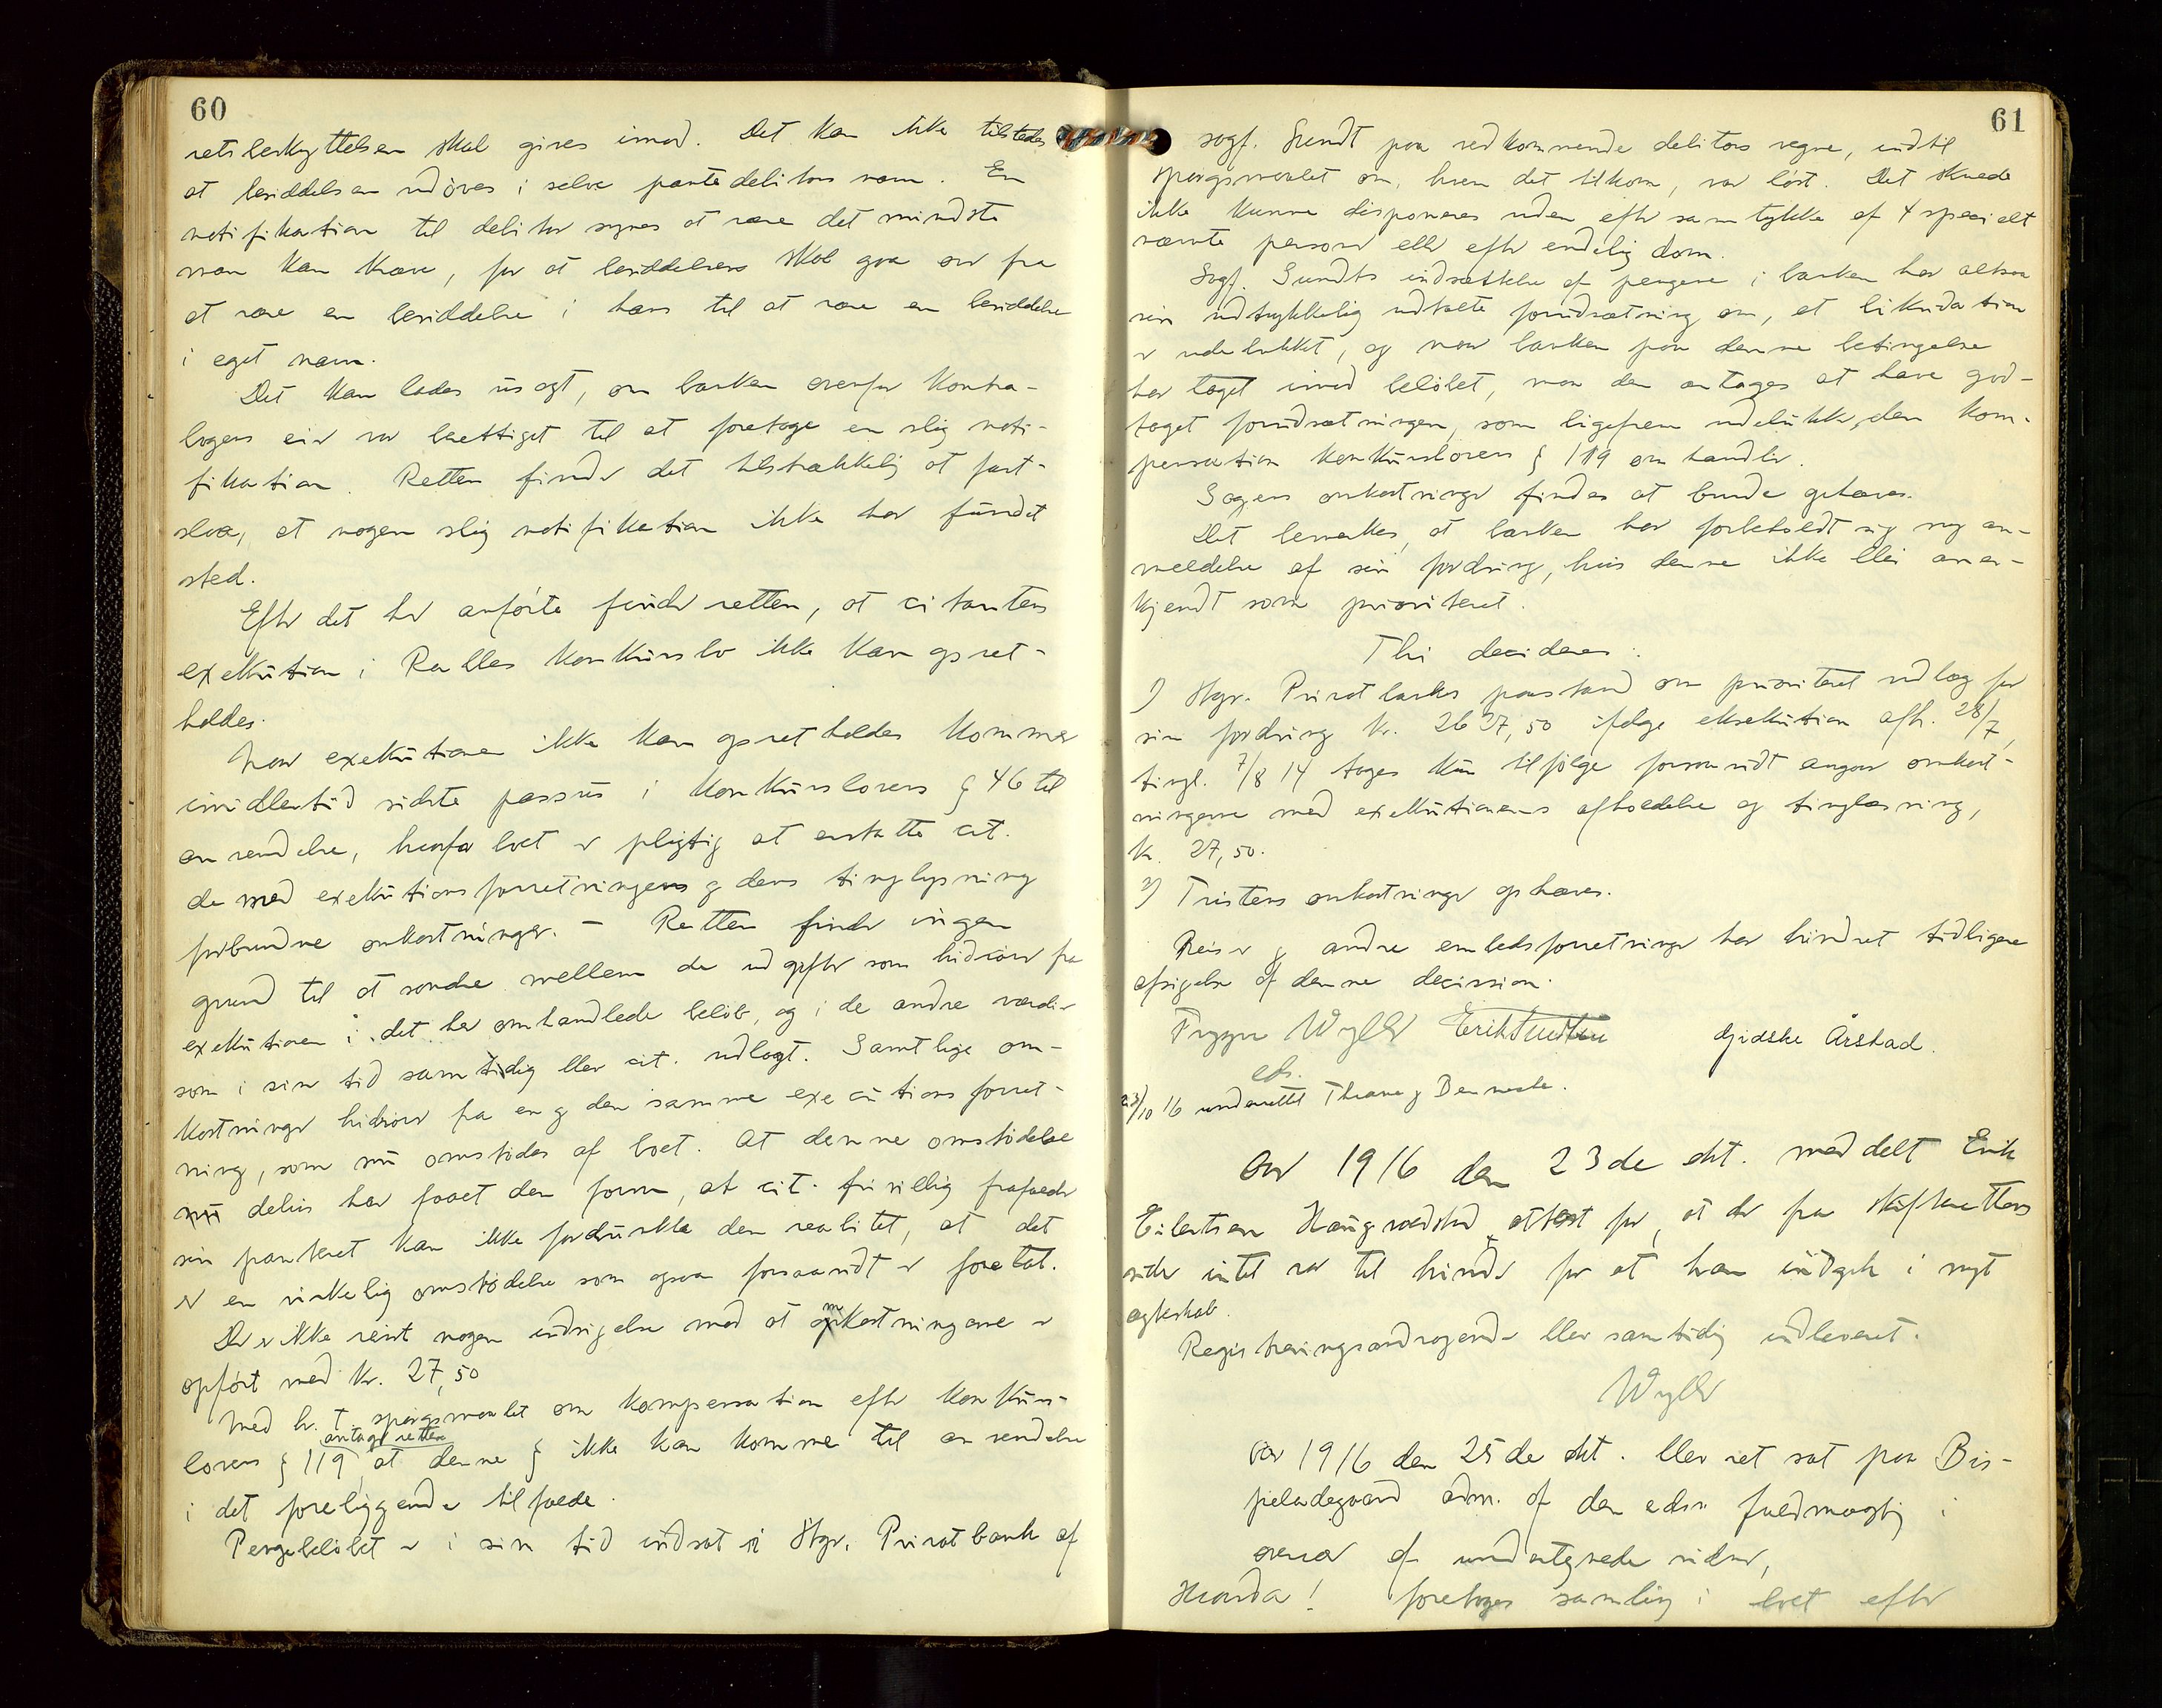 60
retsbeskyttelsen skal gives imod. Det kan ikke tilstedes
at besiddelsen udöves i selve pantedebitors navn. En
notifikation til debitor synes at være det mindste
man kan kræve, for at besiddelsens skal gaa over fra
at være en besiddelse i hans til at være en besiddelse
i eget navn.
Det kan lades usagt, om banken ovenfor kontra-
bogens eier var berettiget til at foretage en slig noti-
fikation. Retten finder det tilstrækkelig at fast-
slaa, at nogen slig notifikation ikke har fundet
sted.
Efter det her anförte finder retten, at citantens
exekution i Ralles konkursbo ikke kan opret-
holdes.
Naar exekutionen ikke kan opretholdes kommer
imidlertid sidste passus i konkurslovens § 46 til
anvendelse, hvorfor boet er pligtig at erstatte cit.
de med exekutionsforretningens og dens tinglysning
forbundne omkostninger. — Retten finder ingen
grund til at sondre mellem de udgifter som hidrörer fra
exekutionen i det her omhandlede belöb, og i de andre værdier
som i sin tid samtidig blev cit. udlagt. Samtlige om-
kostninger hidrörer fra en og den samme executionsforret-
ning, som nu omstödes af boet. At denne omstödelse
delvis har faaet den form, at cit. frivillig frafalder
sin panteret kan ikke fordunkle den realitet, at det
er en virkelig omstödelse som ogsaa forsaavidt er foretat.
Der er ikke reist nogen indsigelse mod at omkostningerne er
opfört med kr. 27,50
Med h. t. spörgsmaalet om kompensation efter konkurs-
antager retten
lovens § 119, at denne § ikke kan komme til anvendelse
i det foreliggende tilfælde.
Pengebelöbet er i sin tid indsat i Hgr. Privatbank af
61
sagf. Sundt paa vedkommende debitors vegne, indtil
spörgsmaalet om, hvem det tilkom, var löst. Det skulde
ikke kunne disponeres uden efter samtykke af 4 specielt
nævnte personer eller efter endelig dom.
Sagf. Sundts indsættelse af pengene i banken har altsaa
sin udtrykkelig udtalte forudsætning om, at likvidation
er udelukket, og naar banken paa denne betingelse
har taget imod belöbet, maa den antages at have god-
taget forudsætningen, som ligefrem udelukker, den kom-
pensation konkurslovens § 119 omhandler.
Sagens omkostninger findes at burde ophæves.
Det bemerkes, at banken har forbeholdt sig ny an-
meldelse af sin fordring, hvis denne ikke blir aner-
kjendt som prioriteret.
Thi decideres:
1) Hgr. Privatbanks paastand om prioriteret udlæg for
sin fordring kr. 2627,50 ifölge eksekution afh. 28/7,
tingl. 7/8 14 tages kun tilfölge forsaavidt angaar omkost-
ningerne med exekutionens afholdelse og tinglæsning,
kr. 27,50.
2) Tvistens omkostninger ophæves.
Reiser og andre embedsforretninger har hindret tidligere
afsigelse af denne decission.
Trygve Wyller Erik Knudsen Gjidske Årstad.
eds.
23/10 16 underrettet Thrane & Bennech.
Aar 1916 den 23de okt. meddelt Erik
Eilertsen Haugvaldstad attest for, at der fra skifterettens
side intet var til hinder for at han indgik i nyt
egteskab.
Registreringsandragende blev samtidig indleveret.
Wyller
Aar 1916 den 25de okt. blev ret sat paa Bis-
peladegaard adm. af den edsv. fuldmægtig i
overvær af undertegnede vidner,
Hvorda! foretoges samling i boet efter